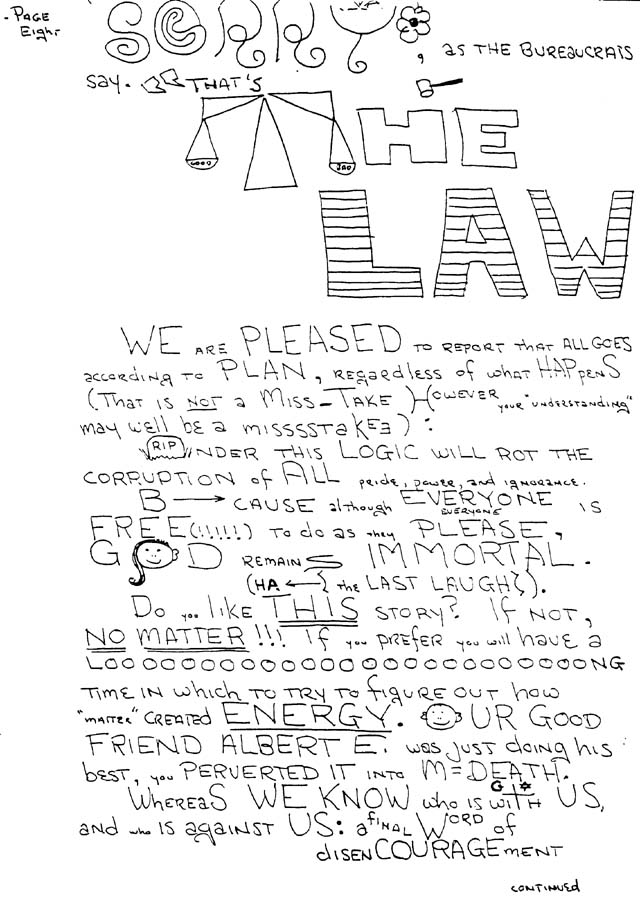 - PAGE
Eight
SORRY, as THE BUREAUCRATS
say. THAT'S
THE
GOOD BAD
LAW
WE ARE PLEASED TO REPORT that ALL GOES
according TO PLAN, regardless of what HAPpenS
(That is NOT a Miss-Take) HOWEVER your "understanding"
may well be a misssstakEE):
RIP UNDER THIS LOGIC WILL ROT THE
CORRUPTION of ALL pride, power, and ignorance.
B → CAUSE although EVERYONE IS
everyone
FREE(!!!!!!) TO do as they PLEASE,
GOD REMAINS IMMORTAL.
(HA ← { the LAST LAUGH}).
Do you like THIS STORY? If NOT,
NO MATTER!!! If you prefer you will have a
LOOOOOOOOOOOOOOOOOOOOOOONG
TIME IN which TO TRY To figure OUT how
"matter" CREATED ENERGY. OUR GOOD
FRIEND ALBERT E. was just doing his
best, you PERVERTED IT into M=DEATH.
WhereaS WE KNOW who is with US,
and who IS against US: a fINAL WORD of
disENCOURAGEment
CONTINUED